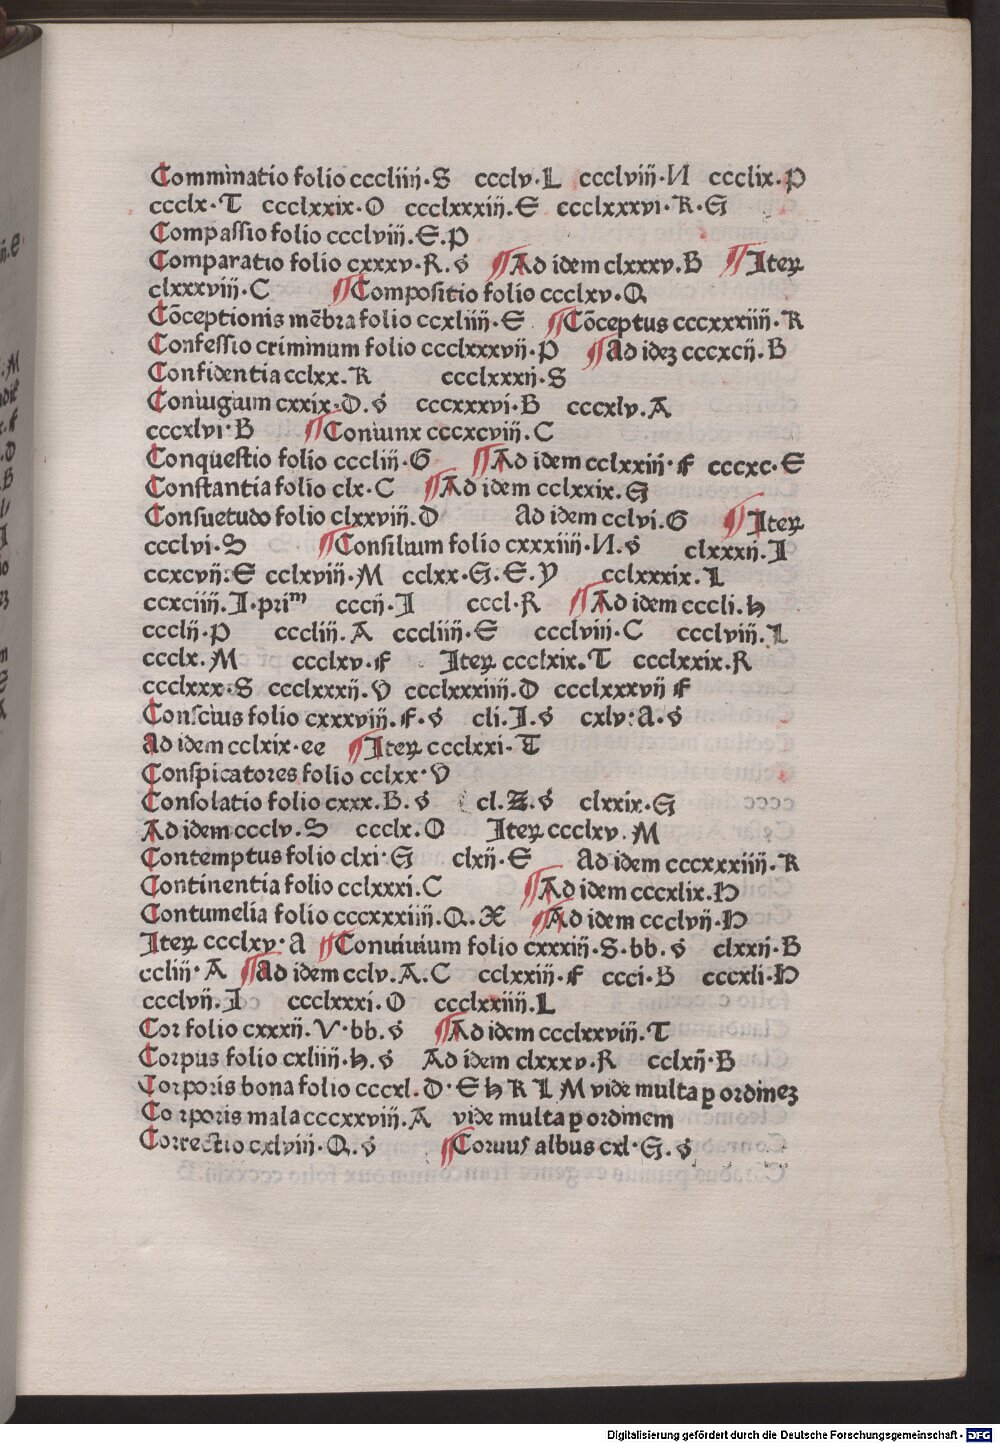 Comminatio folio cccliiii·S ccclv·L ccclviii·N ccclix·P
ccclx·T ccclxxix·O ccclxxxiii·E ccclxxxvi·R·G
Compassio folio ccclviii.E.P
Comparatio folio cxxxv·R.s ¶Ad idem clxxxv.B ¶Iteꝝ
clxxxviii·C ¶Compositio folio ccclxv·Q
Cōceptionis mēbra folio ccxliiii·E ¶Cōceptus cccxxxiiii·R
Confessio criminum folio ccclxxxvii·P ¶Ad ideꝫ cccxcii.B
Confidentia cclxx.R ccclxxxii·S
Coniugium cxxix·O.s cccxxxvi·B cccxlv.A
cccxlvi·B ¶Coniunx cccxcviii.C
Conquestio folio cccliii·G ¶Ad idem cclxxiii·F cccxc·E
Constantia folio clx·C ¶Ad idem cclxxix.G
Consuetudo folio clxxviii.D Ad idem cclvi.G ¶Iteꝝ
ccclvi·S ¶Consilium folio cxxxiiii·N.s clxxxii.I
ccxcvii:E cclxviii·M cclxx·G.E.Y cclxxxix.L
ccxciiii.I·priᵐ cccii·I cccl·R ¶Ad idem cccli.H
ccclii·P cccliii.A cccliiii·E ccclviii·C ccclviii.L
ccclx.M ccclxv·F Iteꝝ ccclxix.T ccclxxix.R
ccclxxx·S ccclxxxii.V ccclxxxiiii.D ccclxxxvii F
Conscius folio cxxxviii.F·s cli.I.s cxlv:A·s
Ad idem cclxix·ee ¶Iteꝝ ccclxxi·T
Conspicatores folio cclxx·V
Consolatio folio cxxx.B.s cl.Z.s clxxix·G
Ad idem ccclv.S ccclx.O Iteꝝ ccclxv.M
Contemptus folio clxi·G clxii·E Ad idem cccxxxiiii.R
Continentia folio cclxxxi.C ¶Ad idem cccxlix.H
Contumelia folio cccxxxiiii.Q.X ¶Ad idem ccclvii·H
Iteꝝ ccclxv:A ¶Conuiuium folio cxxxiii·S·bb.s clxxii·B
ccliii·A ¶Ad idem cclv.A.C cclxxiii·F ccci·B cccxli·H
ccclvii.I ccclxxxi.O ccclxxiiii.L
Cor folio cxxxii.V·bb.s ¶Ad idem ccclxxviii.T
Corpus folio cxliiii·h.s Ad idem clxxxv.R cclxii·B
Corporis bona folio cccxl.D·E h R L M vide multa ꝑ ordineꝫ
Corporis mala cccxxviii.A vide multa ꝑ ordinem
Correctio cxlviii·Q.s ¶Coruus albus cxl·G.s
Digitalisierung gefördert durch die Deutsche Forschungsgemeinschaft - DFG